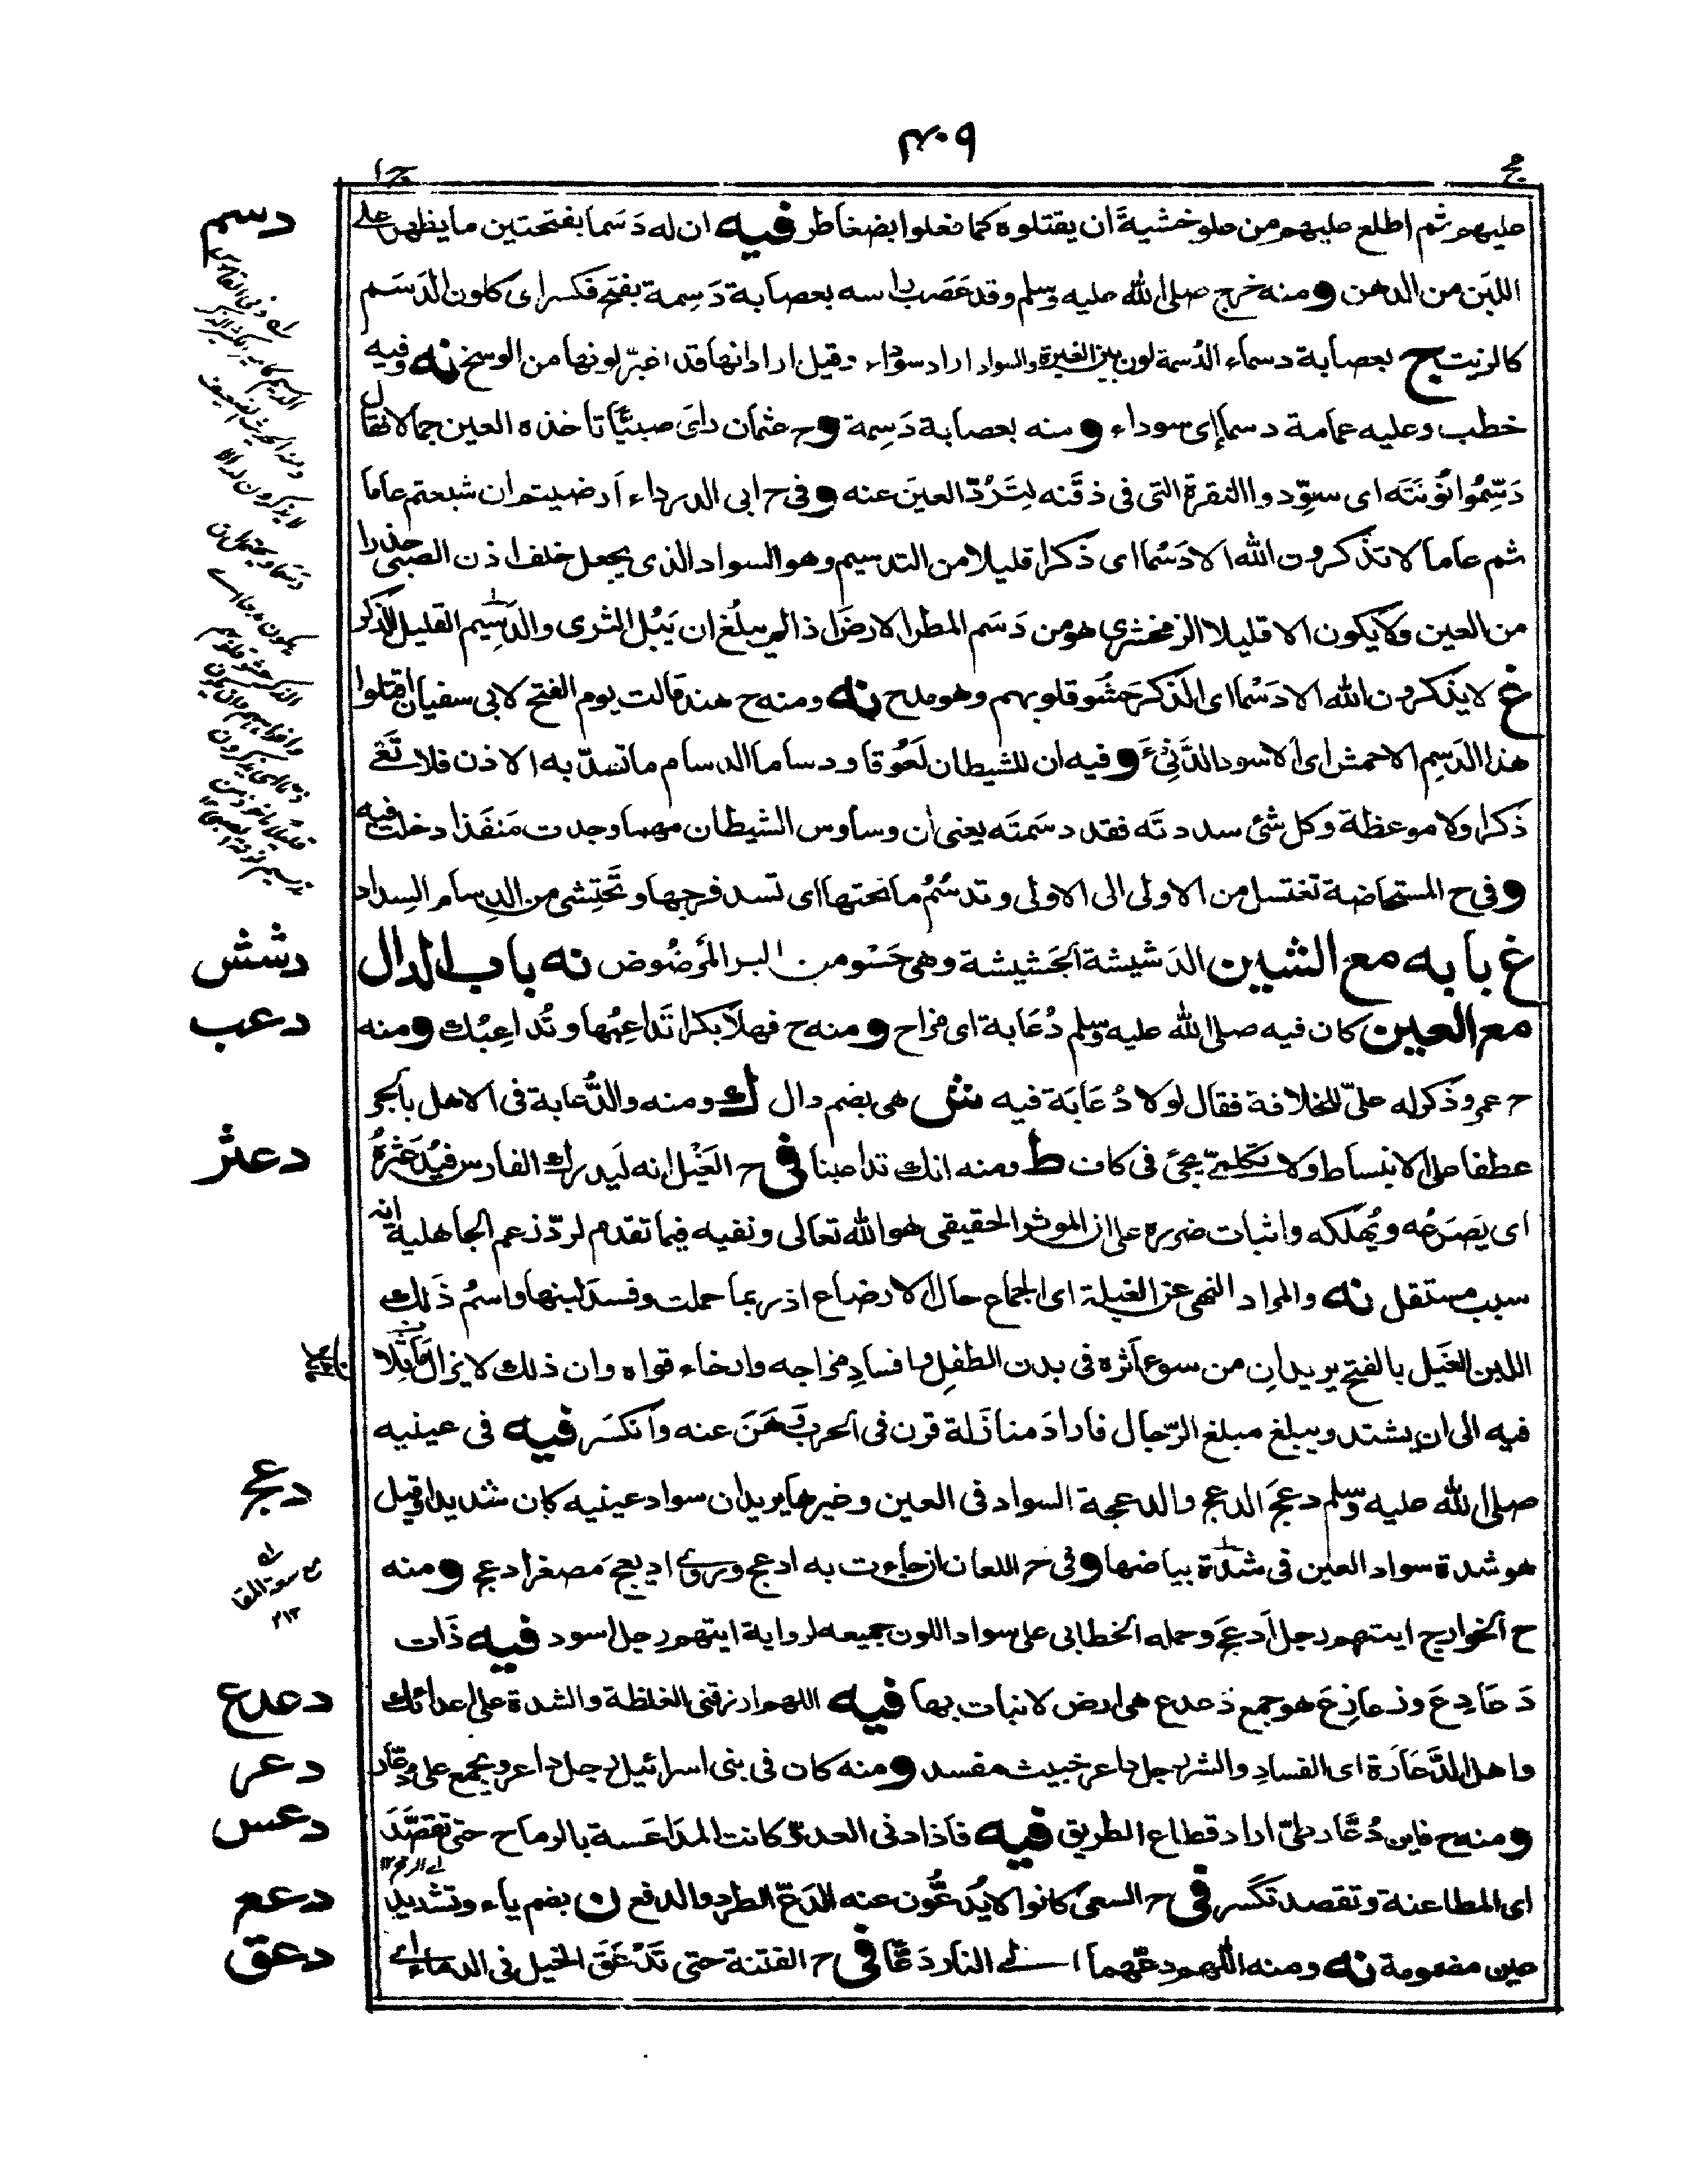 ٤٠٩
مج
ج ١
عليهم ثم اطلع عليهم من علو خشية ان يقتلوه كما فعلوا بضغاطر فيه ان له دَسَما بفتحتين ما يظهر على
اللبَن من الدهن ومنه خرج صلى الله عليه وسلم وقد عَصَب راسه بعصابة دَسِمة بفتح فكسر اى كلون الدَسَم
كالزيت ج بعصابة دسماء الدُسمة لون بين الغبرة والسواد اراد سوداء وقيل اراد انها قد اغبرّ لونها من الوسخ نه وفيه
خطب وعليه عمامة دسماء اى سوداء ومنه بعصابة دَسِمة وح عثمان راى صبيًّا تاخذه العين جمالا فقال
دَسِّمُوا نُونَتَه اى سوِّدوا النقرة التى فى ذقَنه لِتَرُدّ العينَ عنه وفى ح ابى الدرداء اَرضيتم ان شبعتم عاما
ثم عاما لا تذكرون الله الا دَسْما اى ذكرا قليلا من التدسيم وهو السواد الذى يجعل خلف اذن الصبى حذرا
من العين ولا يكون الا قليلا الزمخشرى هو من دَسَم المطر الارضَ اذا لم يبلغ ان يَبُل الثرى والدَسِيم القليل الذكر
غ لا يذكرون الله الا دَسْما اى الذكر حَشْو قلوبهم وهو مدح نه ومنه ح هند قالت يوم الفتح لابى سفيان اقتلوا
هذا الدَسِم الاحمش اى الاسود الدَّنِئَ وفيه ان للشيطان لَعُوقا ودساما الدسام ما تسدّ به الاذن فلا تَعى
ذكرا ولا موعظة وكل شئ سددته فقد دسَمتَه يعنى ان وساوس الشيطان مهما وجدت مَنفَذا دخلت فيه
وفى ح المستحاضة تغتسل من الاولى الى الاولى وتدسُمُ ما تحتها اى تسد فرجها وتَحتِشى من الدِسام السِداد
غ بابه مع الشين الدَشيشة الجَشيشة وهى حَسْو من البر المَرضُوض نه باب الدال
مع العين كان فيه صلى الله عليه وسلم دُعَابة اى مزاح ومنه ح فهلّا بكرا تَداعِبُها وتُداعِبُك ومنه
ح عمر وذكر له علىّ للخلافة فقال لولا دُعَابَة فيه ش هى بضم دال ك ومنه والدُّعابة فى الاهل بالجر
عطفا على الانبساط ولا تكلم يجئ فى كاف ط ومنه انك تداعبنا فى ح الغَيْل انه لَيدرك الفارس فيُدَعْثِرهُ
اى يَصَرعُه ويُهلكه واثبات ضرره على ان الموثر الحقيقى هو الله تعالى ونفيه فيما تقدم لردّ زعم الجاهلية انه
سبب مستقل نه والمراد النهى عن الغيلة اى الجماع حال الارضاع اذ ربما حملت وفسد لبنها واسم ذلك
اللبن الغَيل بالفتح يريد ان من سوء اَثره فى بدن الطفل وافسادِ مزاجه وارخاء قواه وان ذلك لا يزال مَاثِلا
فيه الى ان يشتد ويبلغ مبلغ الرّجال فاذا اراد منازَلة قرن فى الحرب وَهَنَ عنه وانكسَر فيه فى عينيه
صلى الله عليه وسلم دعَجَ الدعج والدعجة السواد فى العين وغيرها يريد ان سواد عينيه كان شديدا وقيل
هو شدة سواد العين فى شدة بياضها وفى ح اللعان ان جاءت به ادعج وروى اديعجَ مصغر ادعج ومنه
ح الخوارج ايتهم رجل اَدعَج وحمله الخطابى على سواد اللون جميعه لرواية ايتهم رجل اسود فيه ذَات
دَعَادِعَ وذعاذِعَ هو جمع ذعدع هى ارض لا نبات بها فيه اللهم ارزقنى الغلظة والشدة على اعدائك
واهل الدَّعَارَة اى الفسادِ والشر رجل داعر خبيث مفسد ومنه كان فى بنى اسرائيل رجل داعر ويجمع على دعّار
ومنه ح فاين دُعَّار طىّ اراد قطاع الطريق فيه فاذا دنى العدو كانت المدَاعَسة بالرماح حتى تقصّدَ
اى المطاعنة وتقصد تكسر فى ح السعى كانوا لا يُدَعُّون عنه الدَعّ الطرد والدفع ن بضم ياء وتشديد
عين مضمومة نه ومنه اللهم دعّهما الى النار دَعًّا فى ح الفتنة حتى تَدْعَقَ الخيل فى الدماء اى
دسم
دشش
دعب
دعثر
دعج
دعدع
دعر
دعس
دعع
دعق